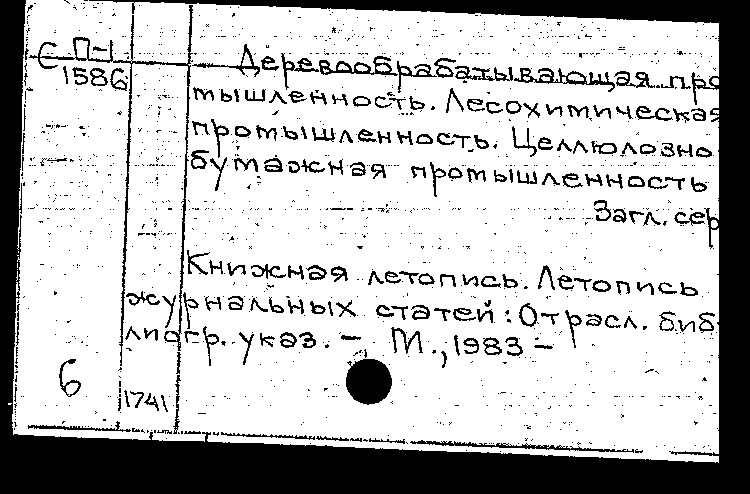 С П-1
1586
Деревообрабатывающая про
мышленность. Лесохимическая
промышленность. Целлюлозно
бумажная промышленность
Загл. сер
Книжная летопись. Летопись
журнальных статей: Отрасл. биб
лиогр. указ. — М., 1983 —
6
1741